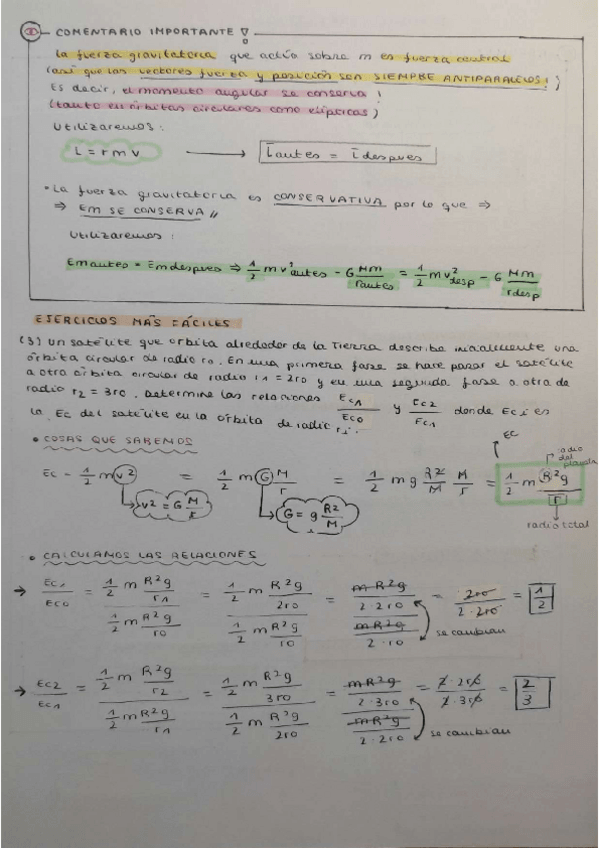 COMENTARIO IMPORTANTE !
La fuerza gravitatoria que actúa sobre m es fuerza central
(así que los vectores fuerza y posición son SIEMPRE ANTIPARALELOS!)
Es decir, el momento angular se conserva!
(tanto en órbitas circulares como elípticas)
Utilizaremos:
L = r m v → L antes = L despues
• La fuerza gravitatoria es CONSERVATIVA por lo que ⇒
⇒ EM SE CONSERVA //
Utilizaremos:
Em antes = Em despues ⇒ 1/2 m v² antes - G Mm/r antes = 1/2 m v² desp - G Mm/r desp
EJERCICIOS MÁS FÁCILES
(3) Un satélite que orbita alrededor de la Tierra describe inicialmente una
órbita circular de radio r0. En una primera fase se hace pasar el satélite
a otra órbita circular de radio r1 = 2r0 y en una segunda fase a otra de
radio r2 = 3r0. Determine las relaciones Ec1/Ec0 y Ec2/Ec1 donde Eci es
la Ec del satélite en la órbita de radio ri.
• COSAS QUE SABEMOS
EC
radio del planeta
EC = 1/2 m v² = 1/2 m G M/r = 1/2 m g R²/M M/r = 1/2 m R²g/r
v² = G M/r
G = g R²/M
radio total
• CALCULAMOS LAS RELACIONES
→ Ec1/Ec0 = (1/2 m R²g/r1)/(1/2 m R²g/r0) = (1/2 m R²g/2r0)/(1/2 m R²g/r0) = (m R²g/2·2r0)/(m R²g/2·r0) = 2r0/2·2r0 = 1/2
se cambian
→ Ec2/Ec1 = (1/2 m R²g/r2)/(1/2 m R²g/r1) = (1/2 m R²g/3r0)/(1/2 m R²g/2r0) = (m R²g/2·3r0)/(m R²g/2·2r0) = 2·2r0/2·3r0 = 2/3
se cambian